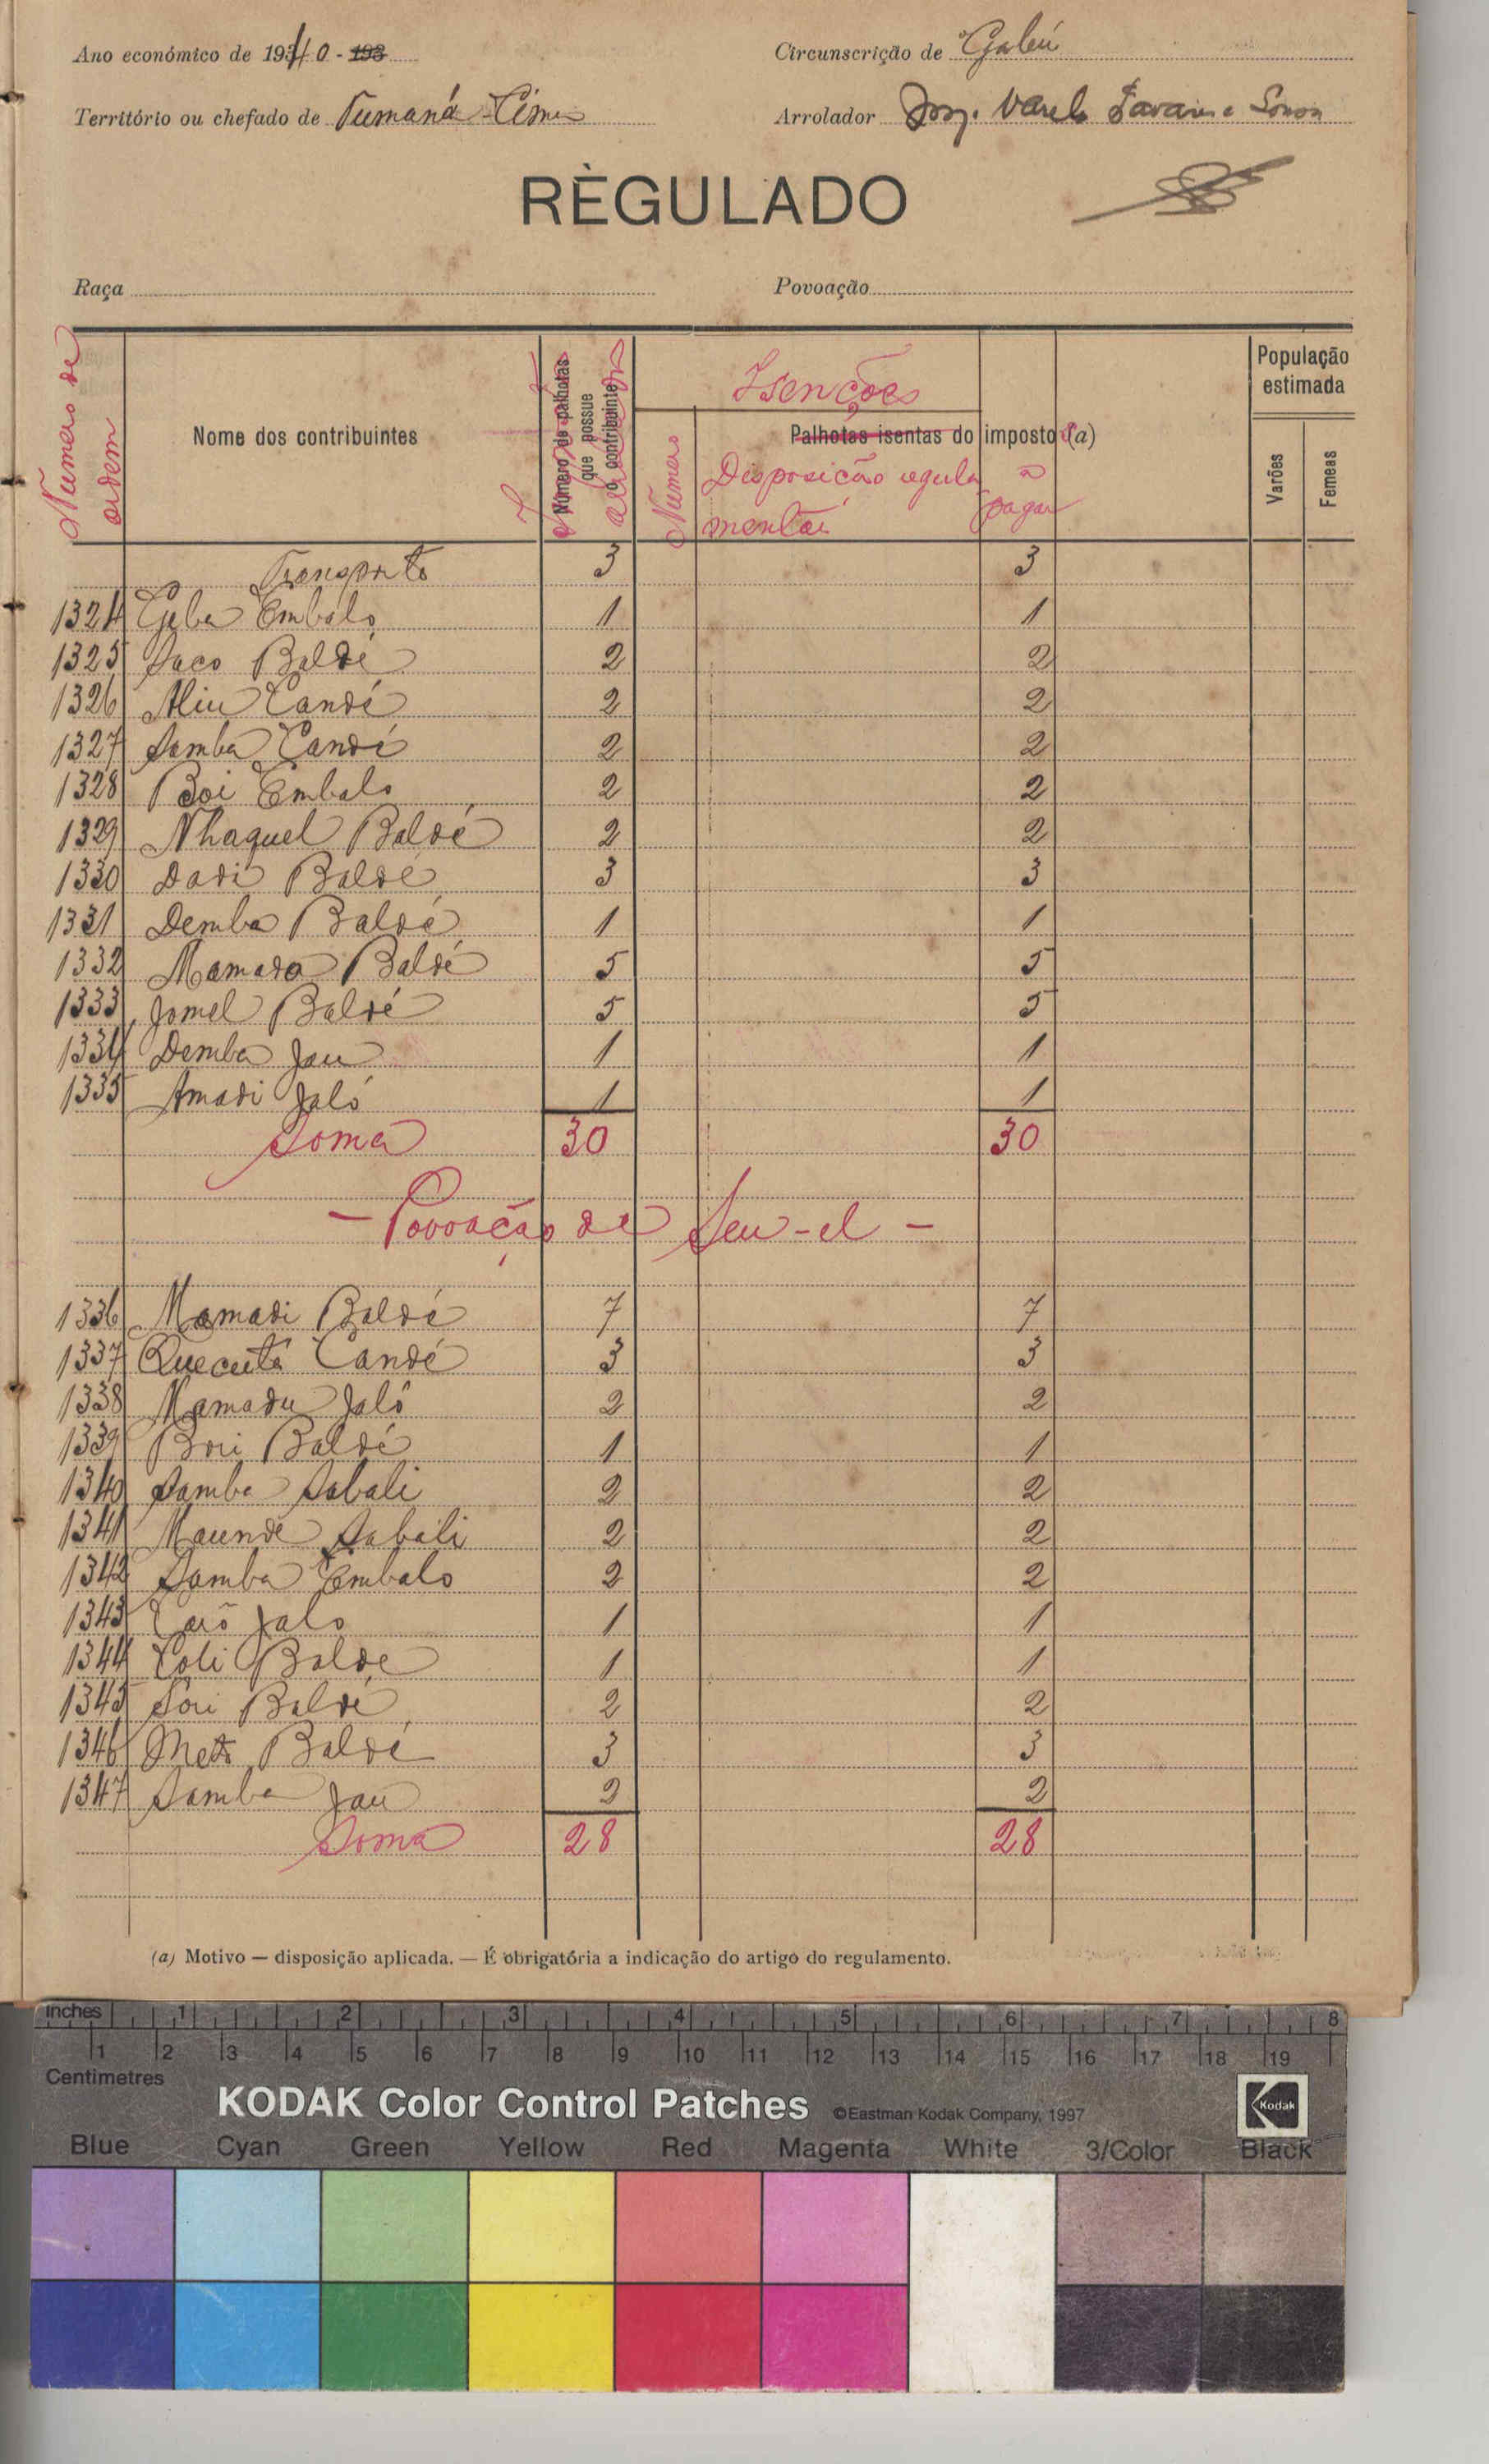 Ano económico de 1940 - 193
Circunscrição de Gabú
Território ou chefado de Tumaná Cima
Arrolador Jorge Varela Tavares e Sousa
RÈGULADO
Raça
Povoação
Número de ordem
Nome dos contribuintes
Número de palhotas que possue o contribuinte
Isenções
Número
Palhotas isentas do imposto (a)
Disposição regulamentar
a pagar
População estimada
Varões
Femeas
Transporte 3 3
1324 Geba Embaló 1 1
1325 Saco Baldé 2 2
1326 Aliu Candé 2 2
1327 Samba Candé 2 2
1328 Boi Embalo 2 2
1329 Nhaguel Baldé 2 2
1330 Dadi Baldé 3 3
1331 Demba Baldé 1 1
1332 Mamado Baldé 5 5
1333 Jomel Baldé 5 5
1334 Demba Jau 1 1
1335 Amadi Jaló 1 1
Soma 30 30
— Povoação de Seu-el —
1336 Mamadi Baldé 7 7
1337 Quecutá Candé 3 3
1338 Mamadu Jaló 2 2
1339 Bori Baldé 1 1
1340 Samba Sabali 2 2
1341 Maunde Sabali 2 2
1342 Samba Embalo 2 2
1343 Jalo 1 1
1344 Coli Balde 1 1
1345 Sori Baldé 2 2
1346 Baldé 3 3
1347 Samba Jau 2 2
Soma 28 28
(a) Motivo — disposição aplicada. — É obrigatória a indicação do artigo do regulamento.
inches 1 2 3 4 5 6 7 8
1 2 3 4 5 6 7 8 9 10 11 12 13 14 15 16 17 18 19
Centimetres
KODAK Color Control Patches ©Eastman Kodak Company, 1997 Kodak
Blue Cyan Green Yellow Red Magenta White 3/Color Black